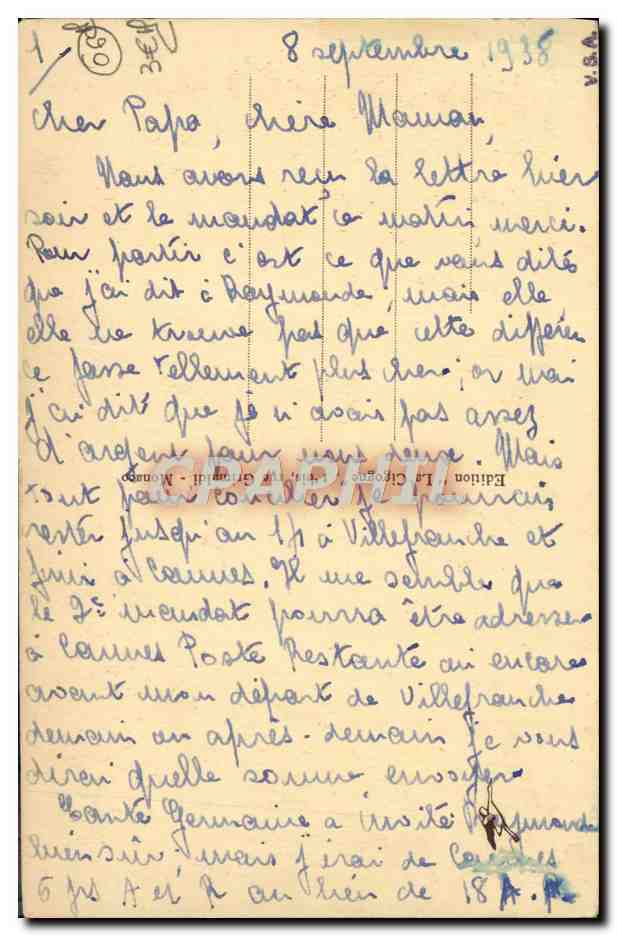 1/
8 septembre 1938
V.S.A.
Cher Papa, chère Maman,
Nous avons reçu la lettre hier
soir et le mandat ce matin, merci.
Pour partir c'est ce que vous dites
que j'ai dit à Raymonde, mais elle
elle ne trouve pas que cette différen
ce fasse tellement plus cher; or moi
j'ai dit que je n'avais pas assez
d'argent pour nous deux. Mais
Edition "La Cigogne" rue Grimaldi - Monaco
CPAPHIL
tout pour concilier je pourrais
rester jusqu'au à Villefranche et
finir à Cannes. Il me semble que
le 2e mandat pourra être adresser
à Cannes Poste Restante ou encore
avant mon départ de Villefranche
demain ou après-demain je vous
dirai quelle somme envoyer.
Tante Germaine a invité Raymonde
bien sûr, mais j'irai de Cannes
6 frs A et R au lieu de 18 A.R.